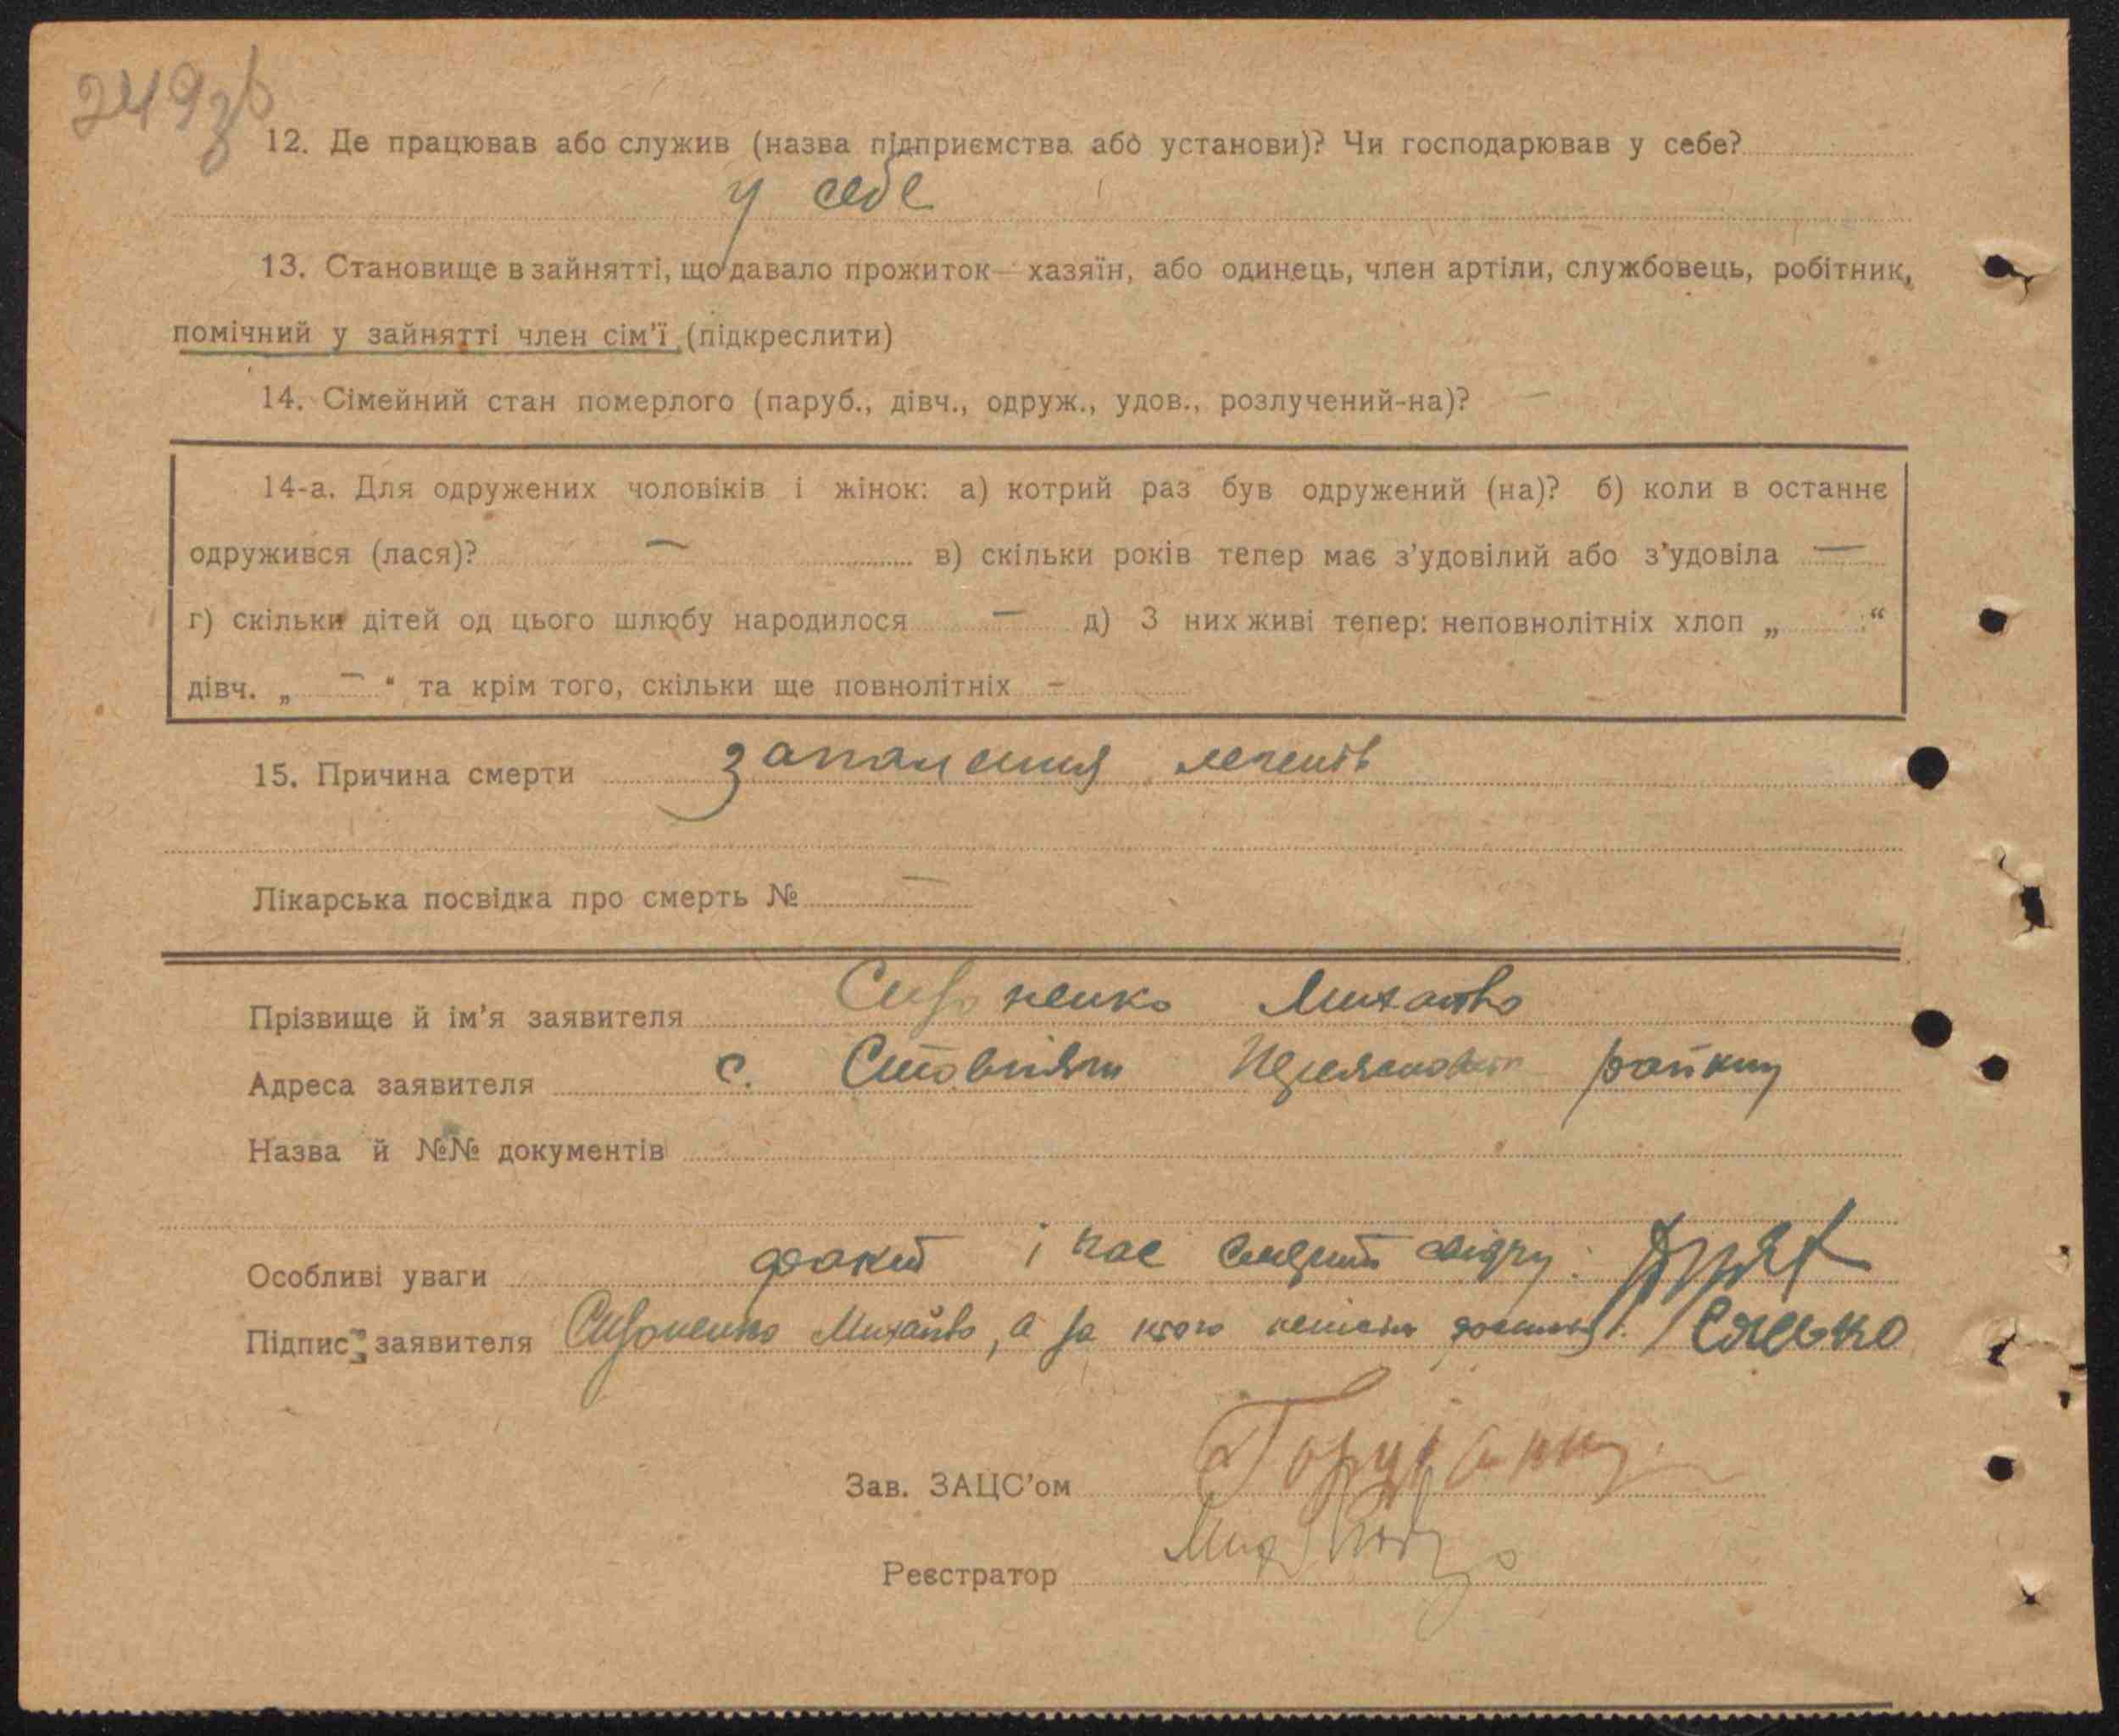 249зв
12. Де працював або служив (назва підприємства або установи)? Чи господарював у себе?
у себе
13. Становище в зайнятті, що давало прожиток — хазяїн, або одинець, член артіли, службовець, робітник,
помічний у зайнятті член сім'ї (підкреслити)
14. Сімейний стан померлого (паруб., дівч., одруж., удов., розлучений-на)? —
14-а. Для одружених чоловіків і жінок: а) котрий раз був одружений (на)? б) коли в останнє
одружився (лася)? — в) скільки років тепер має з'удовілий або з'удовіла —
г) скільки дітей од цього шлюбу народилося — д) З них живі тепер: неповнолітніх хлоп „ “
дівч. „ — “ та крім того, скільки ще повнолітніх —
15. Причина смерти запалення легенів
Лікарська посвідка про смерть № —
Прізвище й ім'я заявителя Сизоненко Михайло
Адреса заявителя с. Стовпяги району
Назва й №№ документів
Особливі уваги факт і час смерти свідчу:
Підпис заявителя Сизоненко Михайло, а за його
Зав. ЗАЦС'ом
Реєстратор